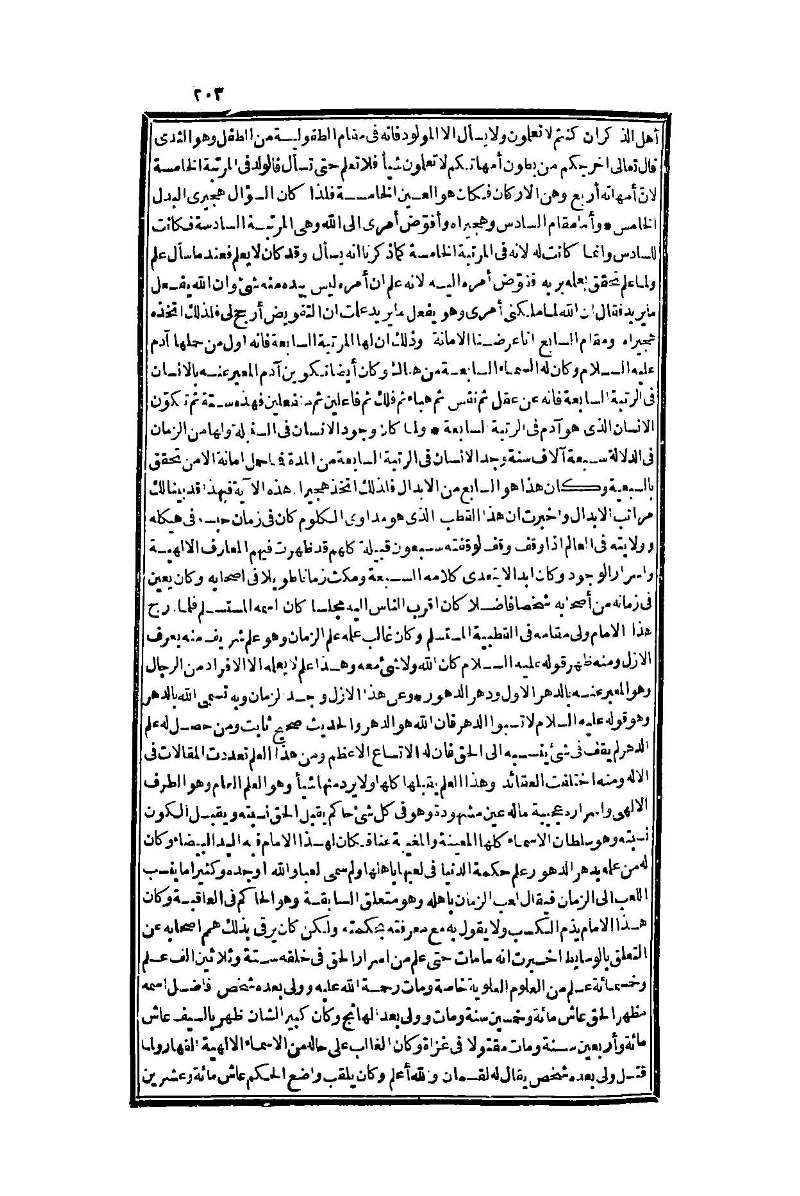 ٢٠٣
أهل الذكر ان كنتم لا تعلمون ولا يسأل الا المولود فانه فى مقام الطفولية من الطفل وهو الندى
قال تعالى أخرجكم من بطون أمهاتكم لا تعلمون شيأ فلا تعلم حتى تسأل فالولد فى المرتبة الخامسة
لان أمهاته أربع وهن الاركان فكان هو العين الخامسة فلذا كان السؤال هجيرى البدل
الخامس * وأما مقام السادس وهجيراه وأفوض أمرى الى الله وهى المرتبة السادسة فكانت
للسادس وانما كانت له لانه فى المرتبة الخامسة كما ذكرنا انه يسأل وقد كان لا يعلم فعندما سأل علم
ولما علم تحقق بعلمه بربه ففوض أمره اليه لانه علم ان أمره ليس بيده منه شئ وان الله يفعل
ما يريد فقال ان الله لما ملكنى أمرى وهو يفعل ما يريد علمت ان التفويض أرجح لى فلذلك اتخذه
هجيراه ومقام السابع انا عرضنا الامانة وذلك ان لها المرتبة السابعة فانه اول من حملها آدم
عليه السلام وكان له السماء السابعة من هنالك وكان أيضا تكوين آدم المعبر عنه بالانسان
فى الرتبة السابعة فانه عن عقل ثم نفس ثم هباء ثم فلك ثم فاعلين ثم منفعلين فهذه ستة ثم تكون
الانسان الذى هو آدم فى الرتبة السابعة * ولما كان وجود الانسان فى السنبلة ولها من الزمان
فى الدلالة سبعة آلاف سنة وجد الانسان فى الرتبة السابعة من المدة فما حمل امانة الا من تحقق
بالسبعية وكان هذا هو السابع من الابدال فلذلك اتخذ هجيراه هذه الآية فهذا قد بينا لك
مراتب الابدال واخبرت ان هذا القطب الذى هو مداوى الكلوم كان فى زمان حبسه فى هيكله
وولايته فى العالم اذا وقف وقف لوقفته سبعون قبيلة كلهم قد ظهرت فيهم المعارف الالهية
واسرار الوجود وكان ابدا لا يتعدى كلامه السبعة ومكث زمانا طويلا فى اصحابه وكان يعين
فى زمانه من أصحابه شخصا فاضلا كان اقرب الناس اليه مجلسا كان اسمه المستسلم فلما درج
هذا الامام ولى مقامه فى القطبية المستسلم وكان غالب علمه علم الزمان وهو علم شريف منه يعرف
الازل ومنه ظهر قوله عليه السلام كان الله ولا شئ معه وهذا علم لا يعلمه الا الافراد من الرجال
وهو المعبر عنه بالدهر الاول ودهر الدهور * وعن هذا الازل وجد الزمان وبه تسمى الله بالدهر
وهو قوله عليه السلام لا تسبوا الدهر فان الله هو الدهر والحديث صحيح ثابت ومن حصل له علم
الدهر لم يقف فى شئ ينسبه الى الحق فان له الاتساع الاعظم ومن هذا العلم تعددت المقالات فى
الاله ومنه اختلفت العقائد وهذا العلم يقبلها كلها ولا يرد منها شيأ وهو العلم العام وهو الظرف
الالهى واسراره عجيبة ماله عين مشهودة وهو فى كل شئ حاكم يقبل الحق نسبته ويقبل الكون
نسبته وهو سلطان الاسماء كلها المعينة والمغيبة عنا فكان لهذا الامام فيه اليد البيضاء وكان
له من علمه بدهر الدهور علم حكمة الدنيا فى لعبها باهلها ولم سمى لعبا والله اوجده وكثيرا ما ينسب
اللعب الى الزمان فيقال لعب الزمان باهله وهو متعلق السابقة وهو الحاكم فى العاقبة وكان
هذا الامام يذم الكسب ولا يقول به مع معرفته بحكمته ولكن كان يرقى بذلك همم اصحابه عن
التعلق بالوسايط اخبرت انه ما مات حتى علم من اسرار الحق فى خلقه ستة وثلاثين الف علم
وخمسمائة علم من العلوم العلوية خاصة ومات رحمة الله عليه وولى بعده شخص فاضل اسمه
مظهر الحق عاش مائة وخمسين سنة ومات وولى بعده الهائج وكان كبير الشان ظهر بالسيف عاش
مائة وأربعين سنة ومات مقتولا فى غزاة وكان الغالب على حاله من الاسماء الالهية القهار ولما
قتل ولى بعده شخص يقال له لقمان والله أعلم وكان يلقب واضع الحكم عاش مائة وعشرين